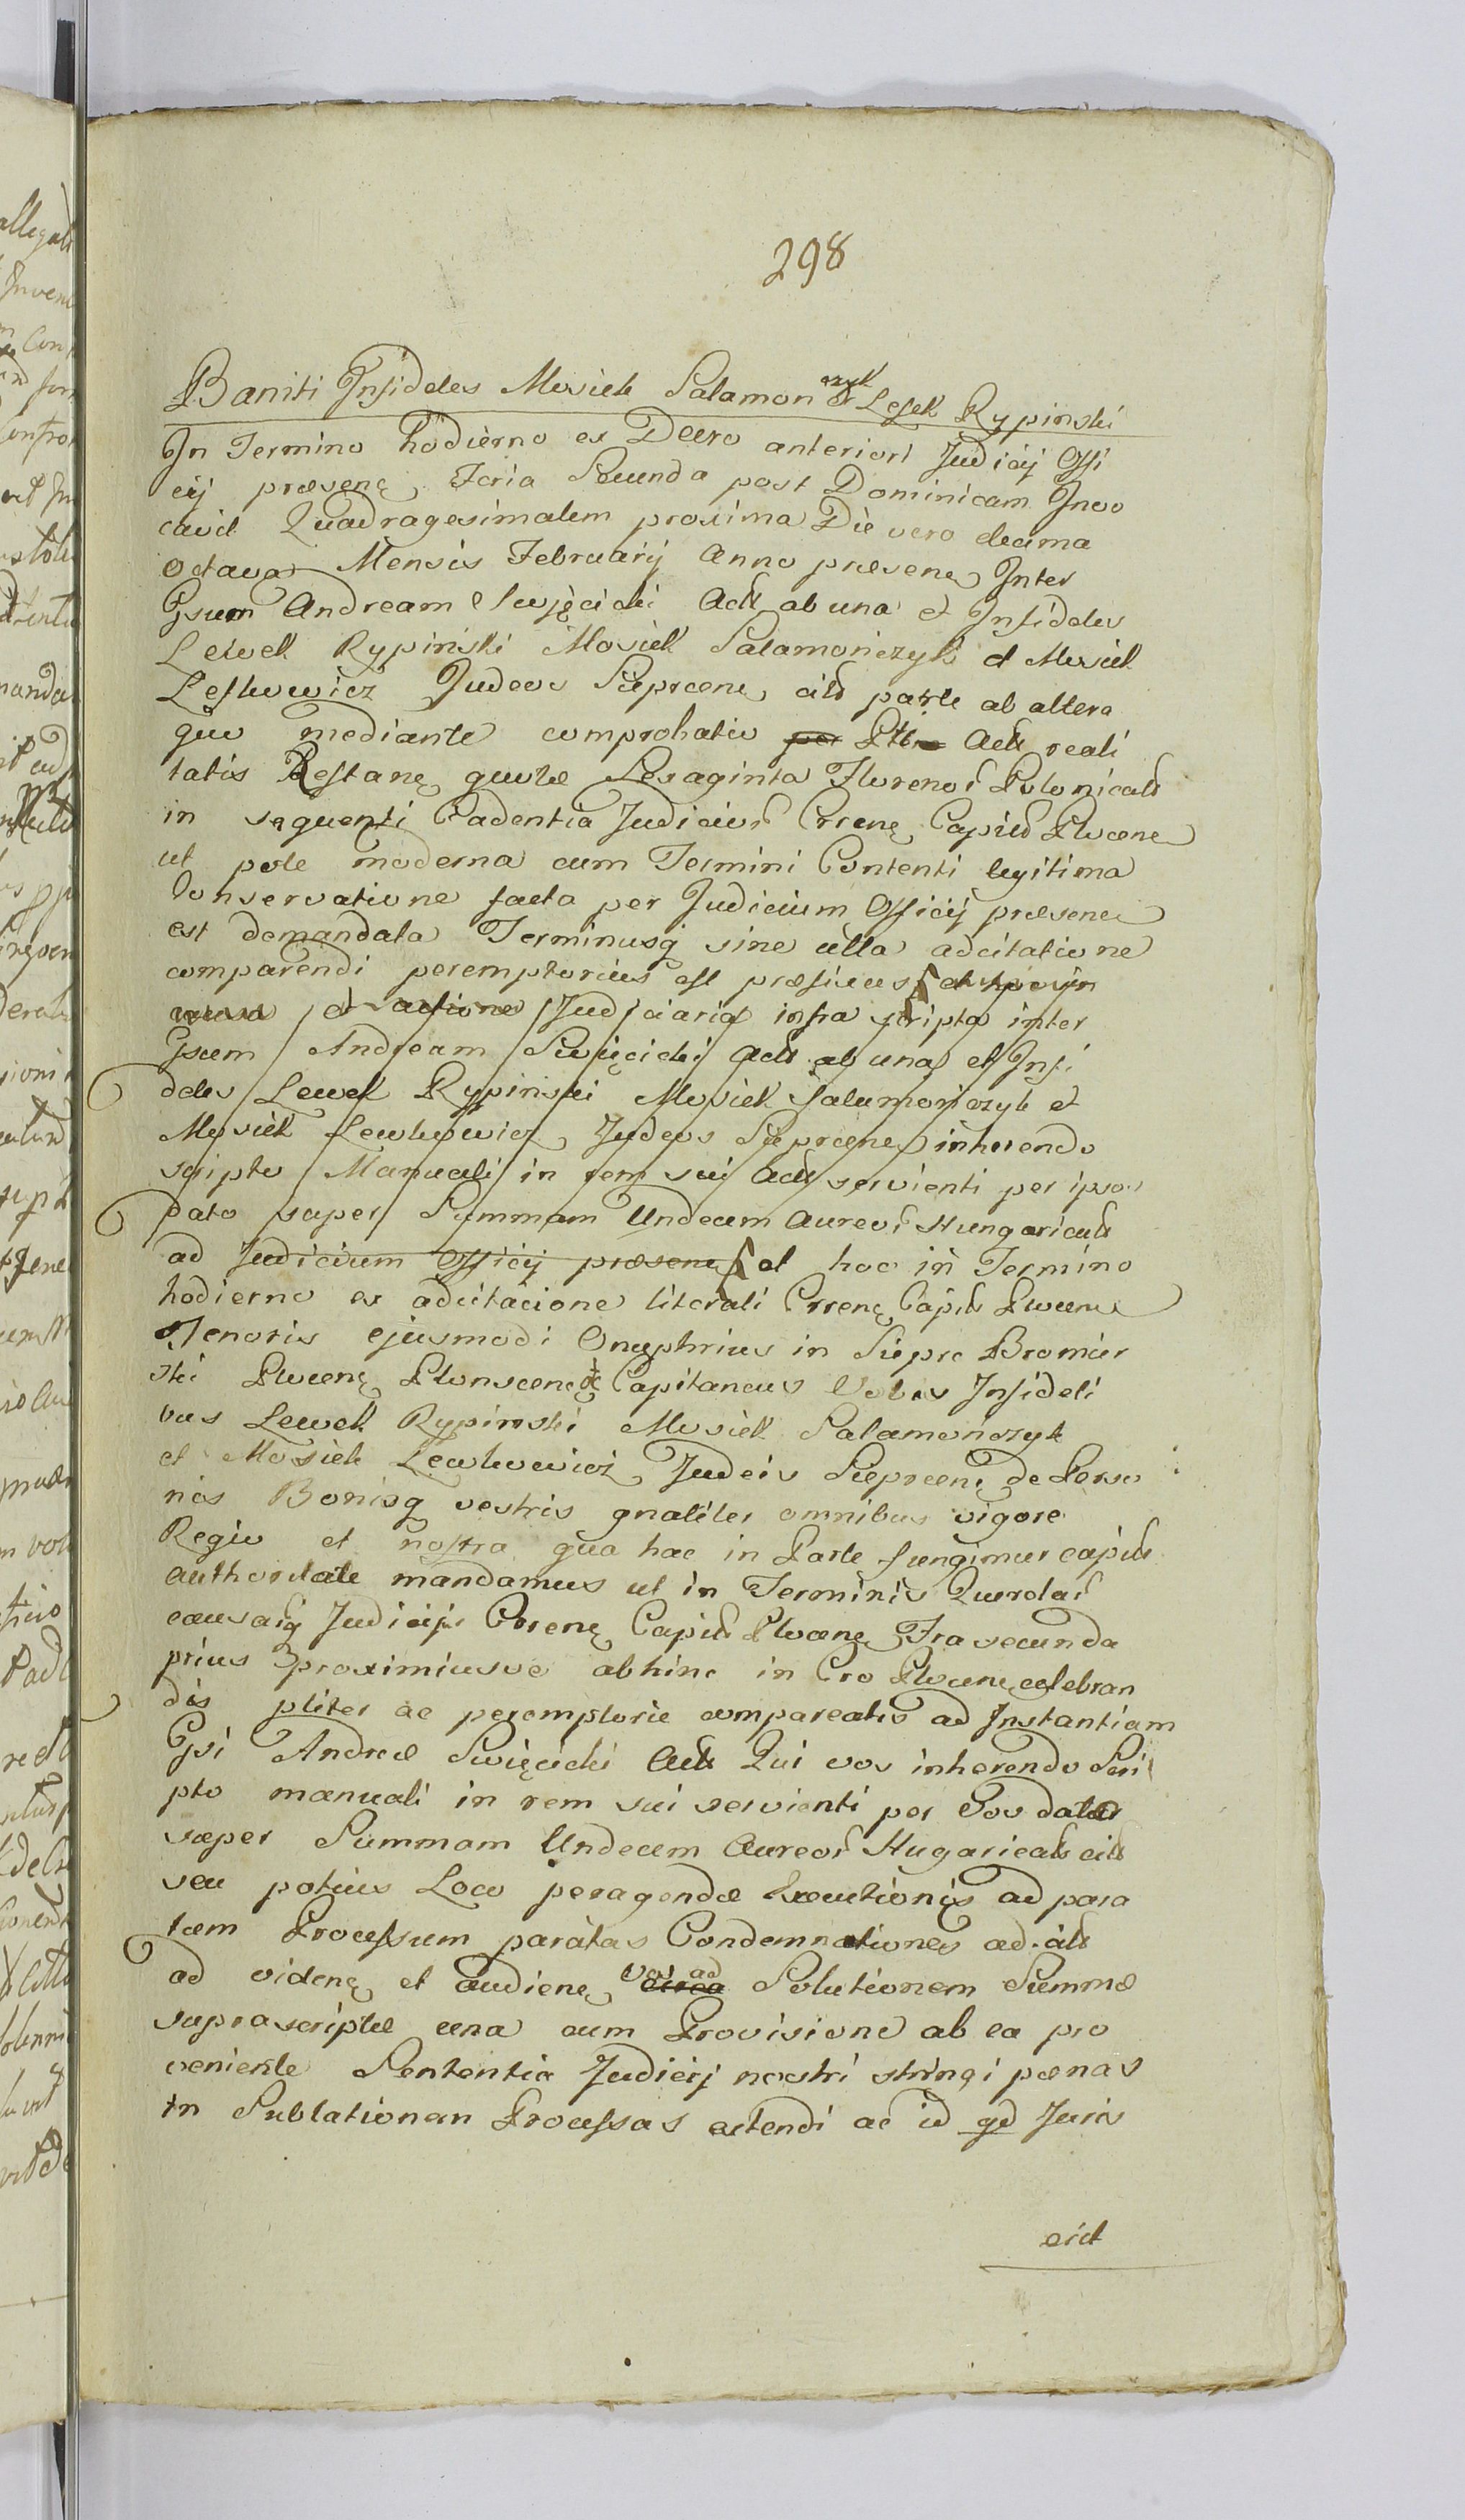 298
Baniti Infideles Mosiek Salamonczyk et Lesek Rypinski
In Termino hodierno ex Decro anteriori Judicij Offi
cij præsenę Feria Secunda post Dominicam Invo
cavit Quadragesimalem proxima Die vero decima
octava Mensis February Anno præsenę Inter
Gsum Andream Swięcicki Actt ab una et Infideles
Lewek Rypinski Mosiek Salamonczyk et Mosiek
Leskowicz Judeos Sieprcenę citt parte ab altera
quo mediante comprobatio per Actt reali
tatis Restanę quotæ Sexaginta Florenoȓ Polonicalȓ
in sequenti Cadentia Judicioȓ Crcenę Capitt Plocenę
ut pote moderna cum Termini Contenti legitima
Conservatione facta per Judicium Officij præsenę
est demandata Terminusq sine ulla adcitatione
comparendi peremptorius est præfixus
causa et actione Judiciaria infra scripta inter
Gsum Andream Swięcicki Actt ab una et Infi
deles Lewek Rypinski Mosiek Salamonczyk et
Mosiek Lewkowicz Judeos Sieprcenę inherendo
scipto Manuali in rem sui Actt servienti per ipsos
dato super Summam Undecem Aureoȓ Hungaricalȓ
ad Judicium Officij præsenę et hoc in Termino
hodierno ex adcitacione literali Crcenę Capitt Plocenę
Tenoris ejusmodi Onuphrius in Sieprc Bromier
ski Plocenę Plonscenę &c Capitaneus Vobis Infideli
bus Lewek Rypinski Mosiek Salamonczyk
et Mosiek Lewkowicz Judeis Sieprcenę de Perso
nis Bonisq vestris gnaliter omnibus vigore
Regio et nostra qua hac in Parte fungimur capitt
authoritate mandamus ut in Terminis Querelaȓ
causarq Judicijs Crcenę Capitt Plocenę Fra secunda
prius proximiusve abhinc in Cro Plocenę celebran
dis pliter ac peremptorie compareatis ad Instantiam
Gsi Andreæ Swięcicki Actt Qui vos inherendo Scri
pto manuali in rem sui servienti per Vos dato
super Summam Undecem Aureoȓ Hugaricalȓ citt
seu potius Loco peragendæ Executionis ad para
tam Processum paratas Condemnationes adcitt
ad videnę et audienę vos ad circa Solutionem Summæ
suprascriptæ una cum Provisione ab ea pro
veniente Sententia Judicij nostri stringi pœnas
in Sublationem Processas extendi ac id qd Juris
erit